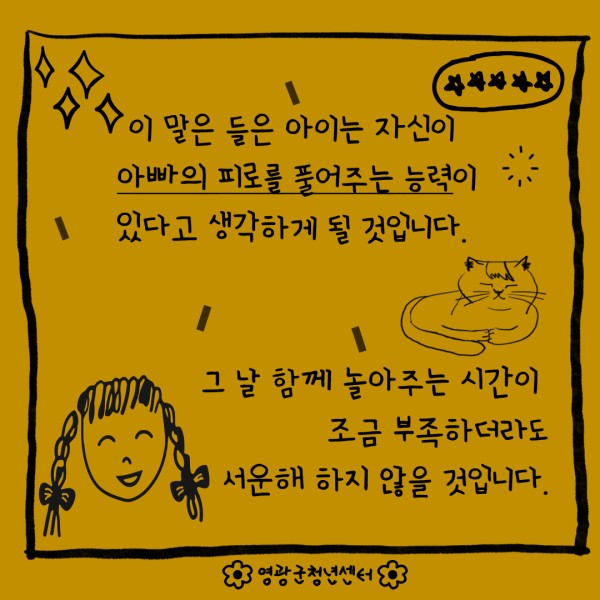 이 말은 들은 아이는 자신이
아빠의 피로를 풀어주는 능력이
있다고 생각하게 될 것입니다.
그 날 함께 놀아주는 시간이
조금 부족하더라도
서운해 하지 않을 것입니다.
영광군청년센터